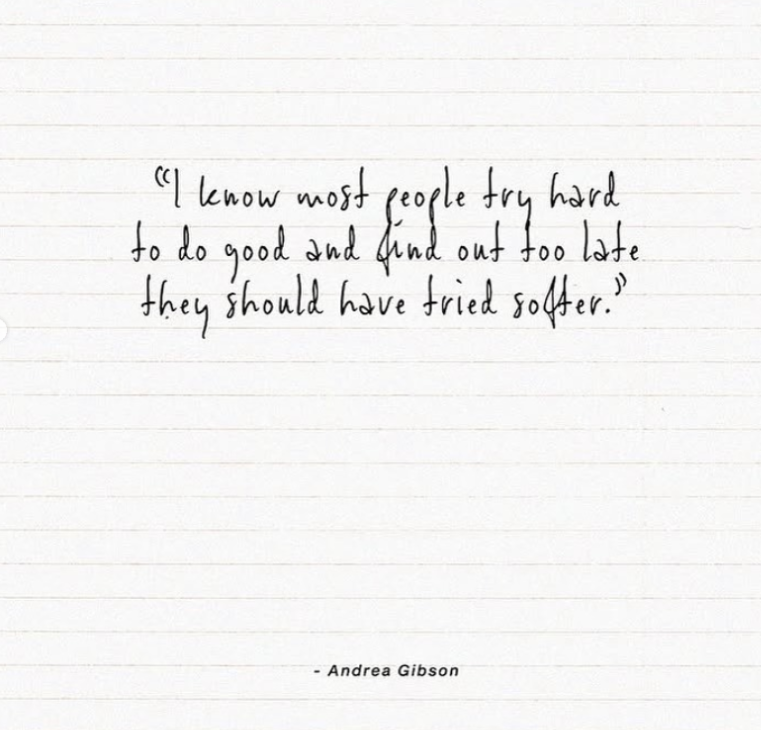 “I know most people try hard
to do good and find out too late
they should have tried softer.”
- Andrea Gibson